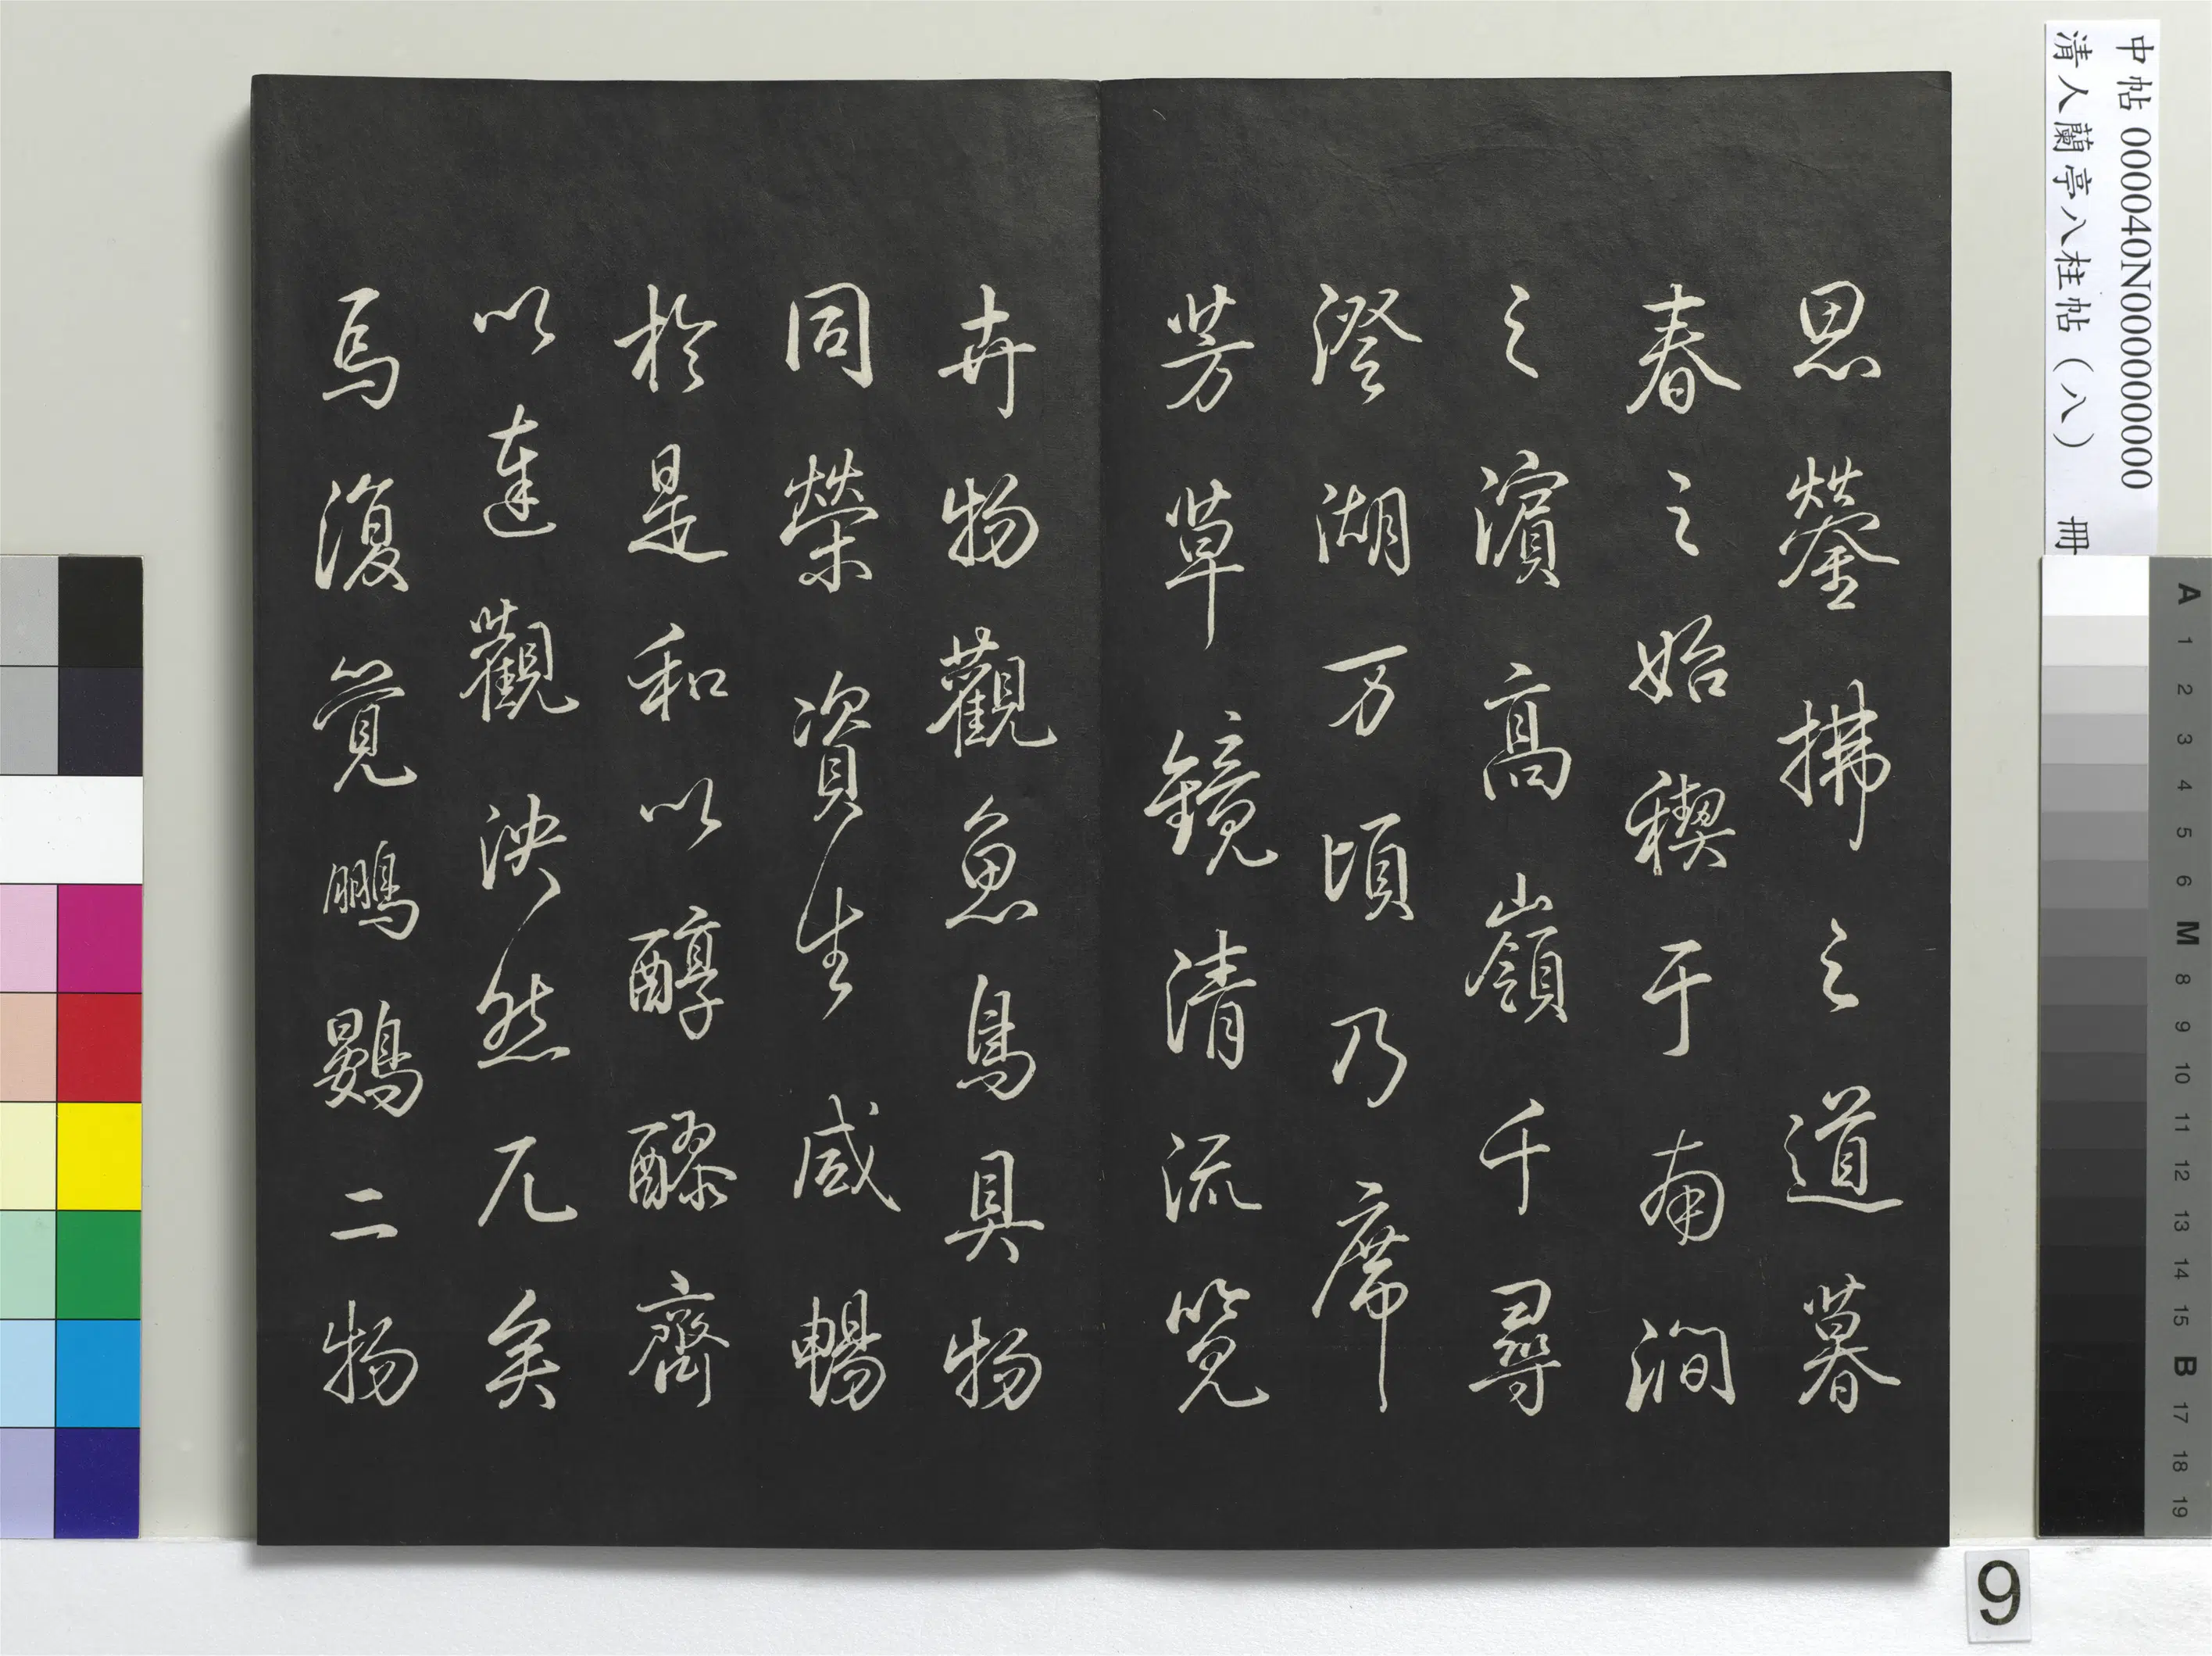 思鎣拂之道暮
春之始稧于南澗
之濱高嶺千尋
澄湖万頃乃席
芳草鏡清流覽
卉物觀魚鳥具物
同榮資生咸暢
於是和以醇醪齊
以達觀泱然兀矣
焉復覺鵬鷃二物
中帖 000040N000000000
清人蘭亭八柱帖（八） 冊
A
1
2
3
4
5
6
M
8
9
10
11
12
13
14
15
B
17
18
19
9